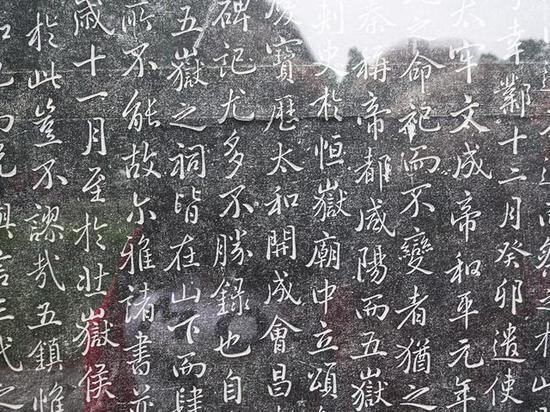 子幸鄴十二月癸卯遣使
太牢文成帝和平元年
之命祀而不變者猶之
秦稱帝都咸陽而五嶽
刺史於恒嶽廟中立頌
寶歷太和開成會昌
碑記尤多不勝錄也自
五嶽之祠皆在山下而肆
所不能故尔雅諸書並
歲十一月至於北嶽侯
於此豈不謬哉五鎮惟
言三代之